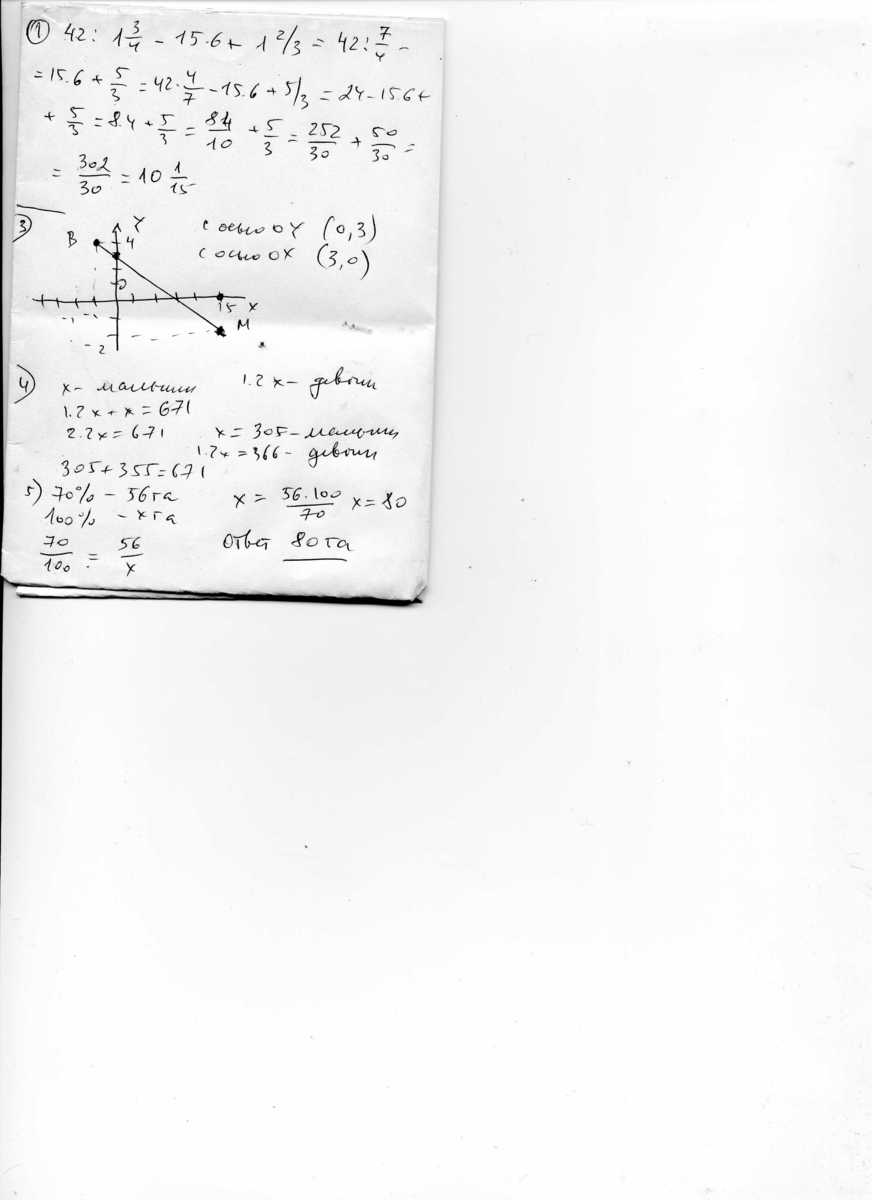 1 42 : 1 3/4 - 15.6 + 1 2/3 = 42 : 7/4 -
= 15.6 + 5/3 = 42 · 4/7 - 15.6 + 5/3 = 24 - 15.6 +
+ 5/3 = 8.4 + 5/3 = 84/10 + 5/3 = 252/30 + 50/30 =
= 302/30 = 10 1/15
3) B Y 4 с осью OY (0,3)
с осью OX (3,0)
0
5 X
-1 M
-2
4) x - мальчики 1.2x - девочки
1.2x + x = 671
2.2x = 671 x = 305 - мальчики
1.2x = 366 - девочки
305 + 355 = 671
5) 70% - 56 га x = 56·100/70 x = 80
100% - x га
70/100 = 56/x Ответ 80 га